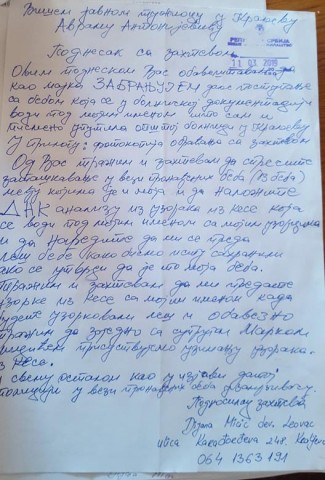 Вишем јавном тужиоцу у Краљеву
Аврам Антонијевићу
РЕПУБЛИКА СРБИЈА
11 03 2019
Поднесак са захтевом
Овим поднеском Вас обавештавам да
као мајка ЗАБРАЊУЈЕМ даље поступање
са бебом која се у болничкој документацији
води под мојим именом што сам и
писмено упутила општој болници у Краљеву
У прилогу: фотокопија обраћања са захтевом
Од Вас тражим и захтевам да спречите
заташкавање у вези пронађених беба (13 беба)
међу којима је и моја и да наложите
ДНК анализу из узорака из кесе која
се води под мојим именом са мојим узорцима
и да наредите да ми се преда
беба како бисмо исту сахранили
ако се утврди да је то моја беба.
Тражим и захтевам да ми предате
узорке из кесе са мојим именом када
будете узорковали и обавезно
тражим да заједно са супругом Марком
присуствујемо узимању узорака
из кеса.
и свему осталом као у изјави датој
полицији у вези пронађених беба
Подносилац захтева
Дијана Мић дев. Leovac
улица Карађорђева 248. Краљево
064 1363 191